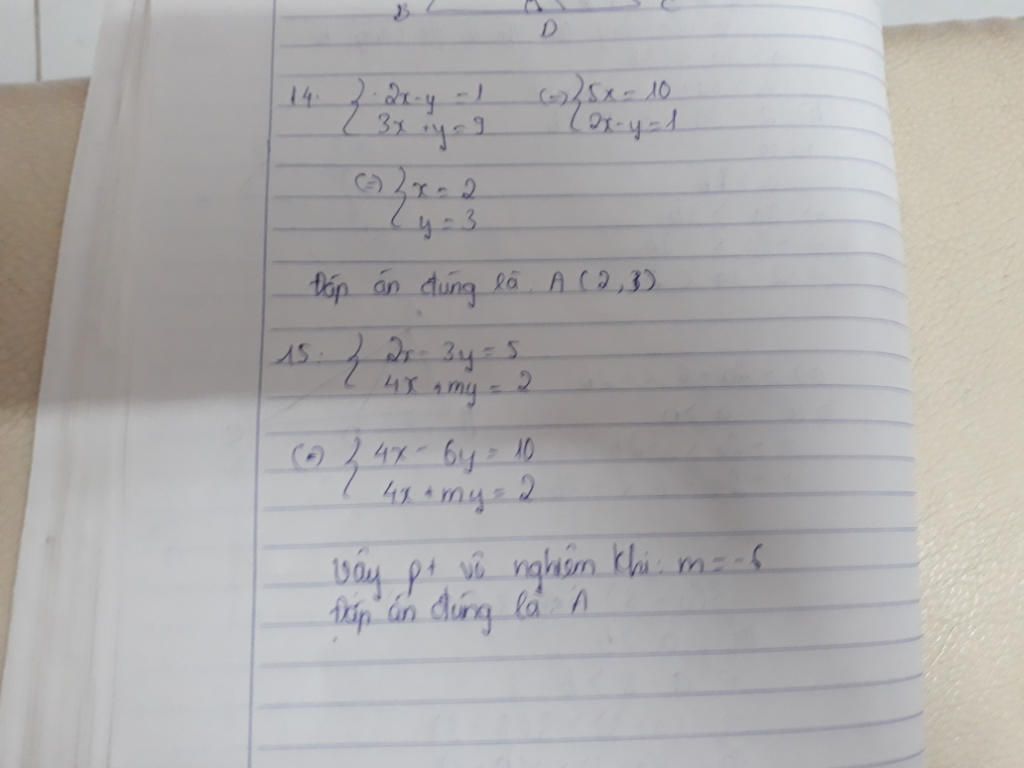 B A C
D
14. { 2x - y = 1 (=) { 5x = 10
3x + y = 9 2x - y = 1
(=) { x = 2
y = 3
Đáp án đúng là. A (2,3)
15. { 2x - 3y = 5
4x + my = 2
(=) { 4x - 6y = 10
4x + my = 2
Vây pt vô nghiêm khi: m = -6
Đáp án đúng là: A